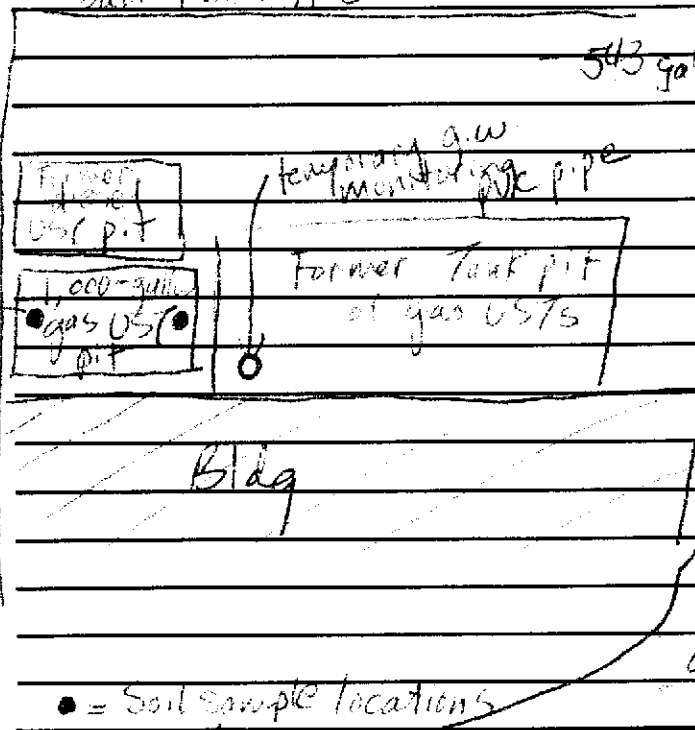 543 gal
temporary g.w
monitoring
pvc pipe
Former
diesel
UST pit
1,000-gallon
gas UST
pit
Former Tank pit
of gas USTs
Bldg
● = Soil sample locations